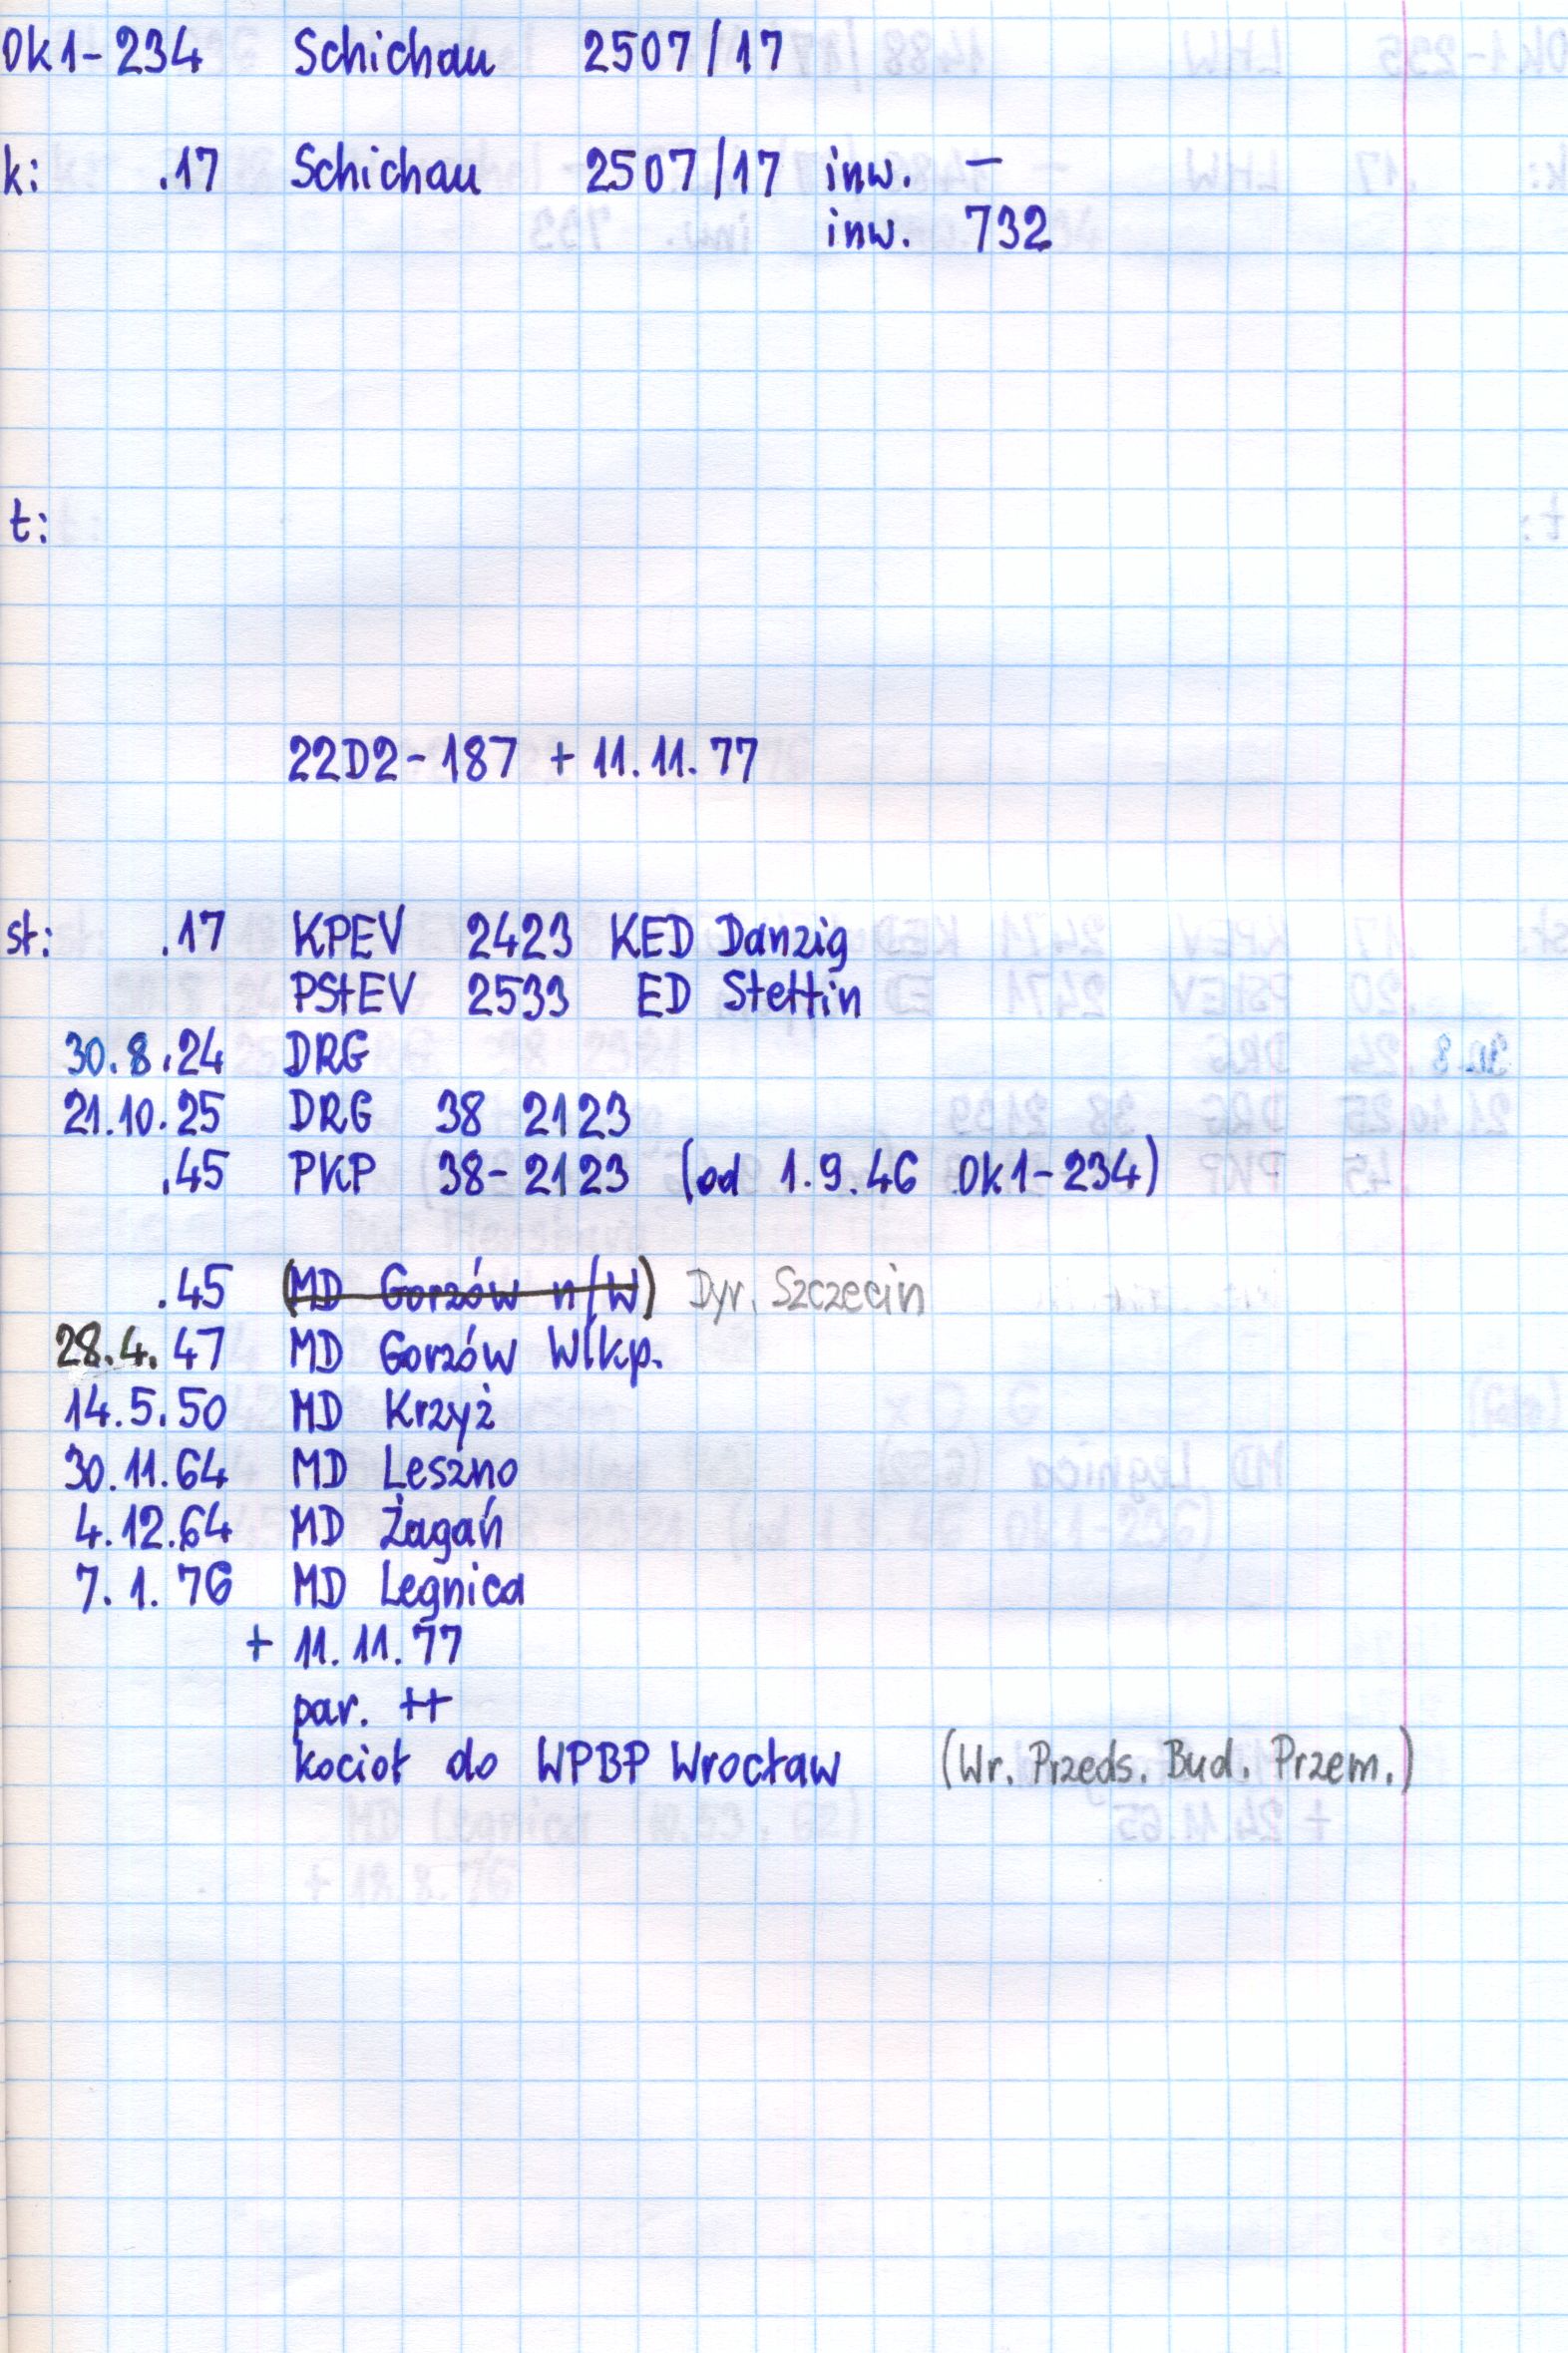 Ok1-234 Schichau 2507/17
k: .17 Schichau 2507/17 inw. —
inw. 732
t:
22D2-187 + 11.11.77
st: .17 KPEV 2423 KED Danzig
PStEV 2533 ED Stettin
30.8.24 DRG
21.10.25 DRG 38 2123
.45 PKP 38-2123 (od 1.9.46 Ok1-234)
.45 (MD Gorzów n/W) Dyr. Szczecin
28.4.47 MD Gorzów Wlkp.
14.5.50 MD Krzyż
30.11.64 MD Leszno
4.12.64 MD Żagań
7.1.76 MD Legnica
+ 11.11.77
par. ++
kocioł do WPBP Wrocław (Wr. Przeds. Bud. Przem.)